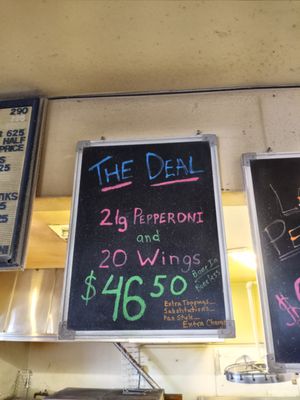 290
R 625
HALF
PRICE
THE DEAL
2 lg PEPPERONI
and
20 Wings
Bone In
$46.50
Extra Toppings
Substitutions
Pan Style
Extra Charge